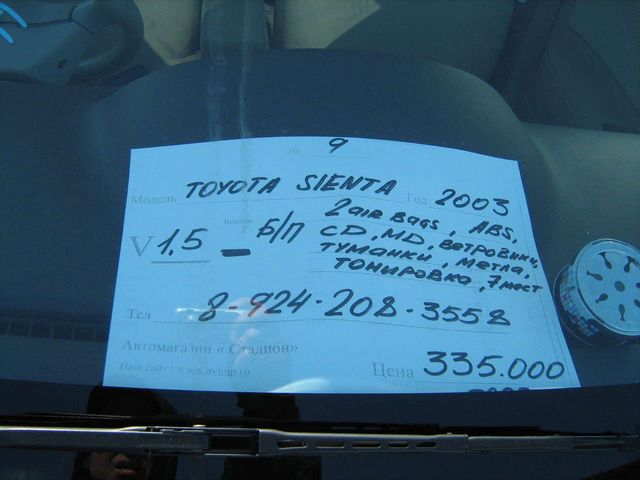 № 9
Модель TOYOTA SIENTA Год 2003
V 1.5 Бензин - Б/П
2 air BAGS, ABS,
CD, MD, ветровики,
туманки, метла,
тонировка, 7 мест
Тел 8-924-208-3558
Автомагазин «Стадион»
Наш сайт :
Цена 335.000